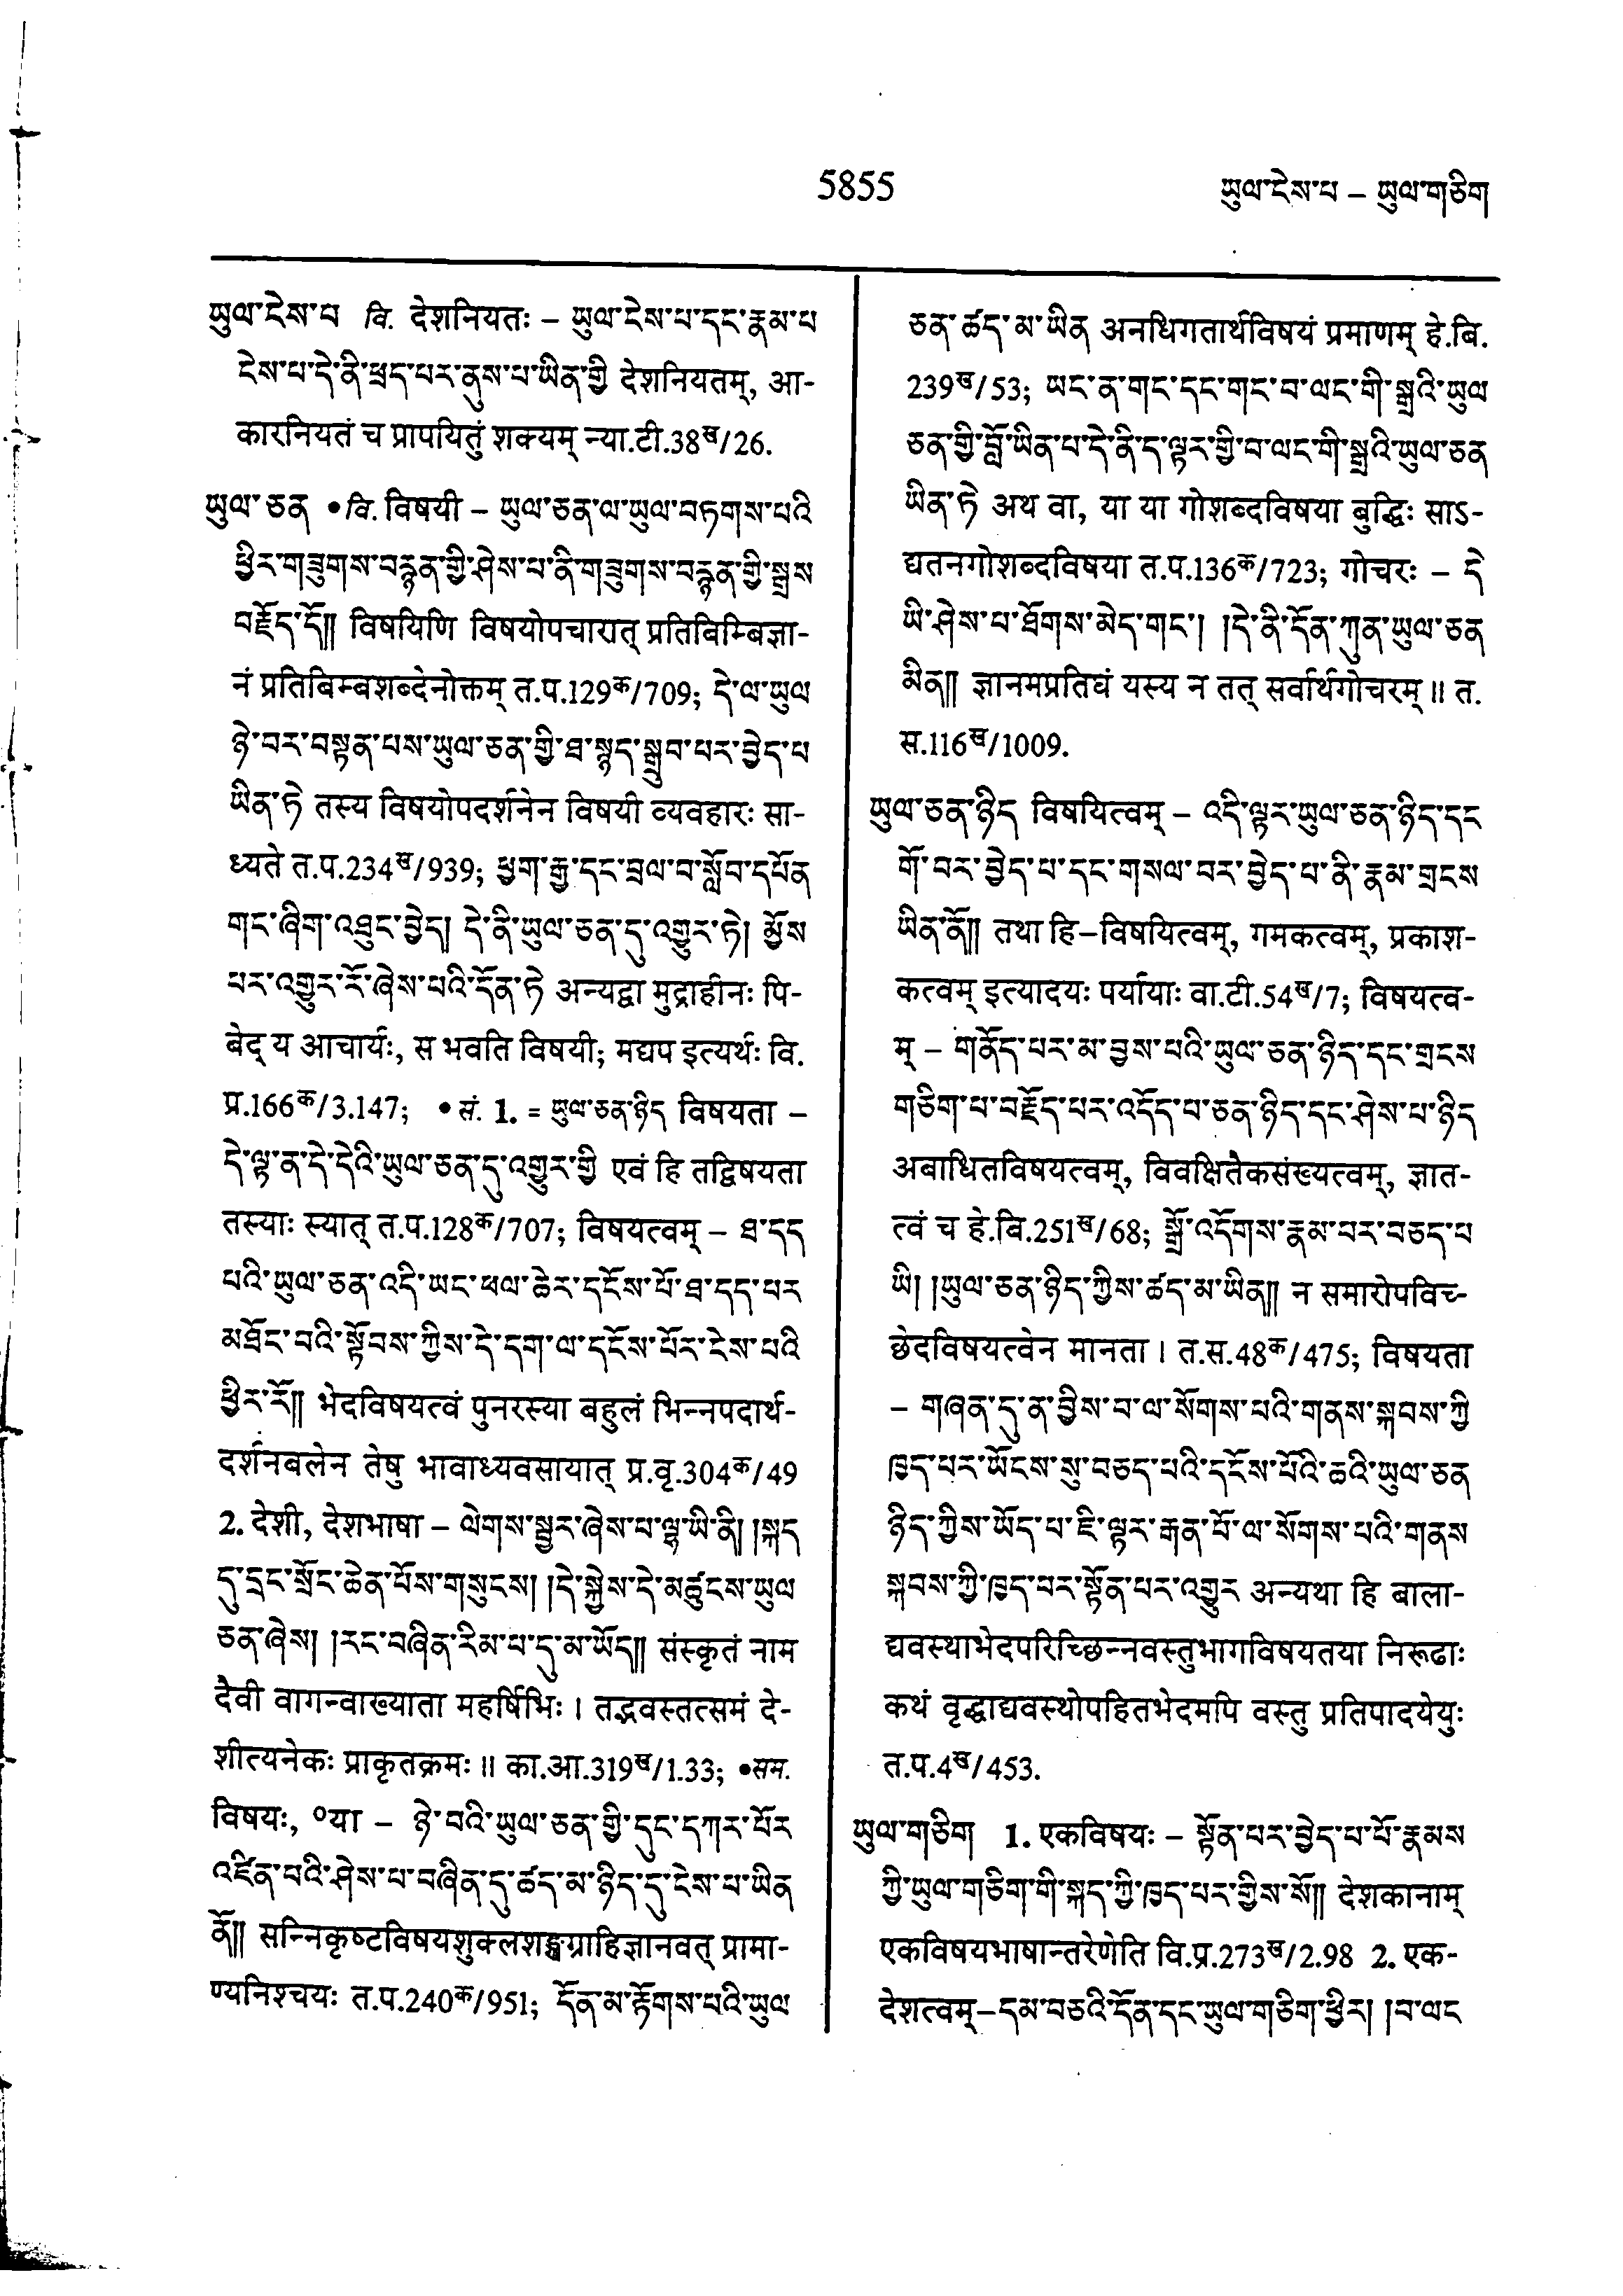 5855
ཡུལ་ངེས་པ – ཡུལ་གཅིག
ཡུལ་ངེས་པ वि. देशनियतः – ཡུལ་ངེས་པ་དང་རྣམ་པ
ངེས་པ་དེ་ནི་ཕྲད་པར་ནུས་པ་ཡིན་གྱི देशनियतम्, आ-
कारनियतं च प्रापयितुं शक्यम् न्या.टी.38ख/26.
ཡུལ་ཅན •वि. विषयी – ཡུལ་ཅན་ལ་ཡུལ་བཏགས་པའི
ཕྱིར་གཟུགས་བརྙན་གྱི་ཤེས་པ་ནི་གཟུགས་བརྙན་གྱི་སྒྲས
བརྗོད་དོ།། विषयिणि विषयोपचारात् प्रतिविम्बिज्ञा-
नं प्रतिबिम्बशब्देनोक्तम् त.प.129क/709; དེ་ལ་ཡུལ
ཉེ་བར་བསྟན་པས་ཡུལ་ཅན་གྱི་ཐ་སྙད་སྒྲུབ་པར་བྱེད་པ
ཡིན་ཏེ तस्य विषयोपदर्शनेन विषयी व्यवहारः सा-
ध्यते त.प.234ख/939; ཕྱག་རྒྱ་དང་བྲལ་བ་སློབ་དཔོན
གང་ཞིག་འཐུང་བྱེད། དེ་ནི་ཡུལ་ཅན་དུ་འགྱུར་ཏེ། མྱོས
པར་འགྱུར་རོ་ཞེས་པའི་དོན་ཏེ अन्यद्वा मुद्राहीनः पि-
बेद् य आचार्यः, स भवति विषयी; मद्यप इत्यर्थः वि.
प्र.166क/3.147; •सं. 1. = ཡུལ་ཅན་ཉིད विषयता –
དེ་ལྟ་ན་དེ་དེའི་ཡུལ་ཅན་དུ་འགྱུར་གྱི एवं हि तद्विषयता
तस्याः स्यात् त.प.128क/707; विषयत्वम् – ཐ་དད
པའི་ཡུལ་ཅན་འདི་ཡང་ཕལ་ཆེར་དངོས་པོ་ཐ་དད་པར
མཐོང་བའི་སྟོབས་ཀྱིས་དེ་དག་ལ་དངོས་པོར་ངེས་པའི
ཕྱིར་རོ།། भेदविषयत्वं पुनरस्या बहुलं भिन्नपदार्थ-
दर्शनबलेन तेषु भावाध्यवसायात् प्र.वृ.304क/49
2. देशी, देशभाषा – ལེགས་སྦྱར་ཞེས་པ་ལྷ་ཡི་ནི། །སྐད
དུ་དྲང་སྲོང་ཆེན་པོས་གསུངས། །དེ་སྐྱེས་དེ་མཚུངས་ཡུལ
ཅན་ཞེས། །རང་བཞིན་རིམ་པ་དུ་མ་ཡོད།། संस्कृतं नाम
दैवी वागन्वाख्याता महर्षिभिः । तद्भवस्तत्समं दे-
शीत्यनेकः प्राकृतक्रमः ॥ का.आ.319ख/1.33; •सम.
विषयः, ०या – ཉེ་བའི་ཡུལ་ཅན་གྱི་དུང་དཀར་པོར
འཛིན་པའི་ཤེས་པ་བཞིན་དུ་ཚད་མ་ཉིད་དུ་ངེས་པ་ཡིན
ནོ།། सन्निकृष्टविषयशुक्लशङ्खग्राहिज्ञानवत् प्रामा-
ण्यनिश्चयः त.प.240क/951; དོན་མ་རྟོགས་པའི་ཡུལ
ཅན་ཚད་མ་ཡིན अनधिगतार्थविषयं प्रमाणम् हे.बि.
239ख/53; ཡང་ན་གང་དང་གང་བ་ལང་གི་སྒྲའི་ཡུལ
ཅན་གྱི་བློ་ཡིན་པ་དེ་ནི་ད་ལྟར་གྱི་བ་ལང་གི་སྒྲའི་ཡུལ་ཅན
ཡིན་ཏེ अथ वा, या या गोशब्दविषया बुद्धिः साऽ-
द्यतनगोशब्दविषया त.प.136क/723; गोचरः – དེ
ཡི་ཤེས་པ་ཐོགས་མེད་གང་། །དེ་ནི་དོན་ཀུན་ཡུལ་ཅན
མིན།། ज्ञानमप्रतिघं यस्य न तत् सर्वार्थगोचरम् ॥ त.
स.116ख/1009.
ཡུལ་ཅན་ཉིད विषयित्वम् – འདི་ལྟར་ཡུལ་ཅན་ཉིད་དང
གོ་བར་བྱེད་པ་དང་གསལ་བར་བྱེད་པ་ནི་རྣམ་གྲངས
ཡིན་ནོ།། तथा हि–विषयित्वम्, गमकत्वम्, प्रकाश-
कत्वम् इत्यादयः पर्यायाः वा.टी.54ख/7; विषयत्व-
म् – གནོད་པར་མ་བྱས་པའི་ཡུལ་ཅན་ཉིད་དང་གྲངས
གཅིག་པ་བརྗོད་པར་འདོད་པ་ཅན་ཉིད་དང་ཤེས་པ་ཉིད
अबाधितविषयत्वम्, विवक्षितैकसंख्यत्वम्, ज्ञात-
त्वं च हे.बि.251ख/68; སྒྲོ་འདོགས་རྣམ་བར་བཅད་པ
ཡི། །ཡུལ་ཅན་ཉིད་ཀྱིས་ཚད་མ་ཡིན།། न समारोपविच्-
छेदविषयत्वेन मानता । त.स.48क/475; विषयता
– གཞན་དུ་ན་བྱིས་བ་ལ་སོགས་པའི་གནས་སྐབས་ཀྱི
ཁྱད་པར་ཡོངས་སུ་བཅད་པའི་དངོས་པོའི་ཆའི་ཡུལ་ཅན
ཉིད་ཀྱིས་ཡོད་པ་ཇི་ལྟར་རྒན་པོ་ལ་སོགས་པའི་གནས
སྐབས་ཀྱི་ཁྱད་པར་སྟོན་པར་འགྱུར अन्यथा हि बाला-
द्यवस्थाभेदपरिच्छिन्नवस्तुभागविषयतया निरूढाः
कथं वृद्धाद्यवस्थोपहितभेदमपि वस्तु प्रतिपादयेयुः
त.प.4ख/453.
ཡུལ་གཅིག 1. एकविषयः – སྟོན་པར་བྱེད་པ་པོ་རྣམས
ཀྱི་ཡུལ་གཅིག་གི་སྐད་ཀྱི་ཁྱད་པར་གྱིས་སོ།། देशकानाम्
एकविषयभाषान्तरेणेति वि.प्र.273ख/2.98 2. एक-
देशत्वम्–དམ་བཅའི་དོན་དང་ཡུལ་གཅིག་ཕྱིར། །བ་ལང